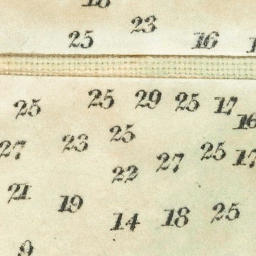 23
25 16
25 25 29 25 17
16
27 23 25
22 27 25 17
21 19
14 18 25
9